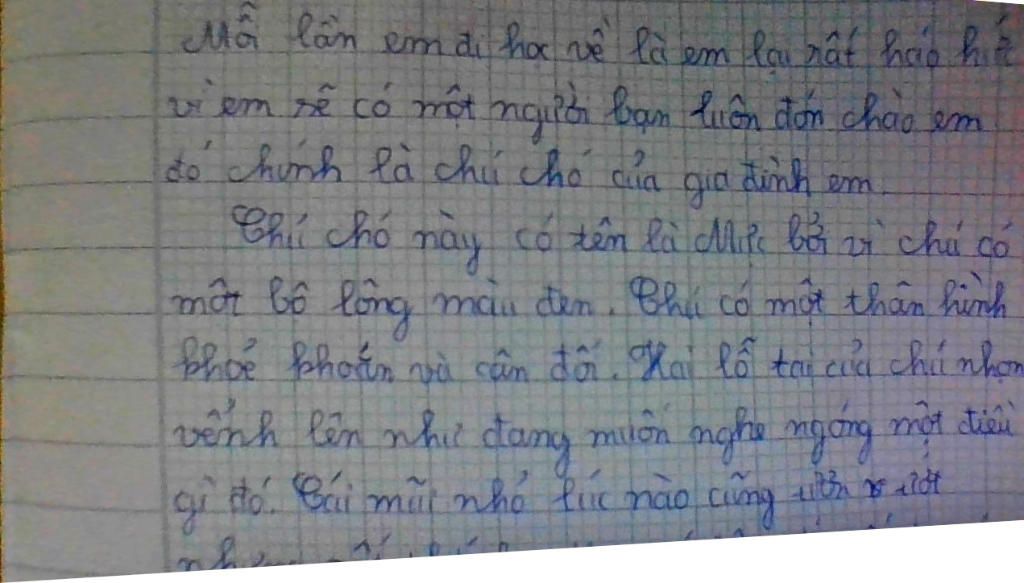 Mỗi lần em đi học về là em lại rất háo
vì em sẽ có một người bạn luôn đón chào em
đó chính là chú chó của gia đình em
Chú chó này có tên là Mực bởi vì chú có
một bộ lông màu đen. Chú có một thân hình
khoẻ khoắn và cân đối. Hai lỗ tai của chú nhọn
vểnh lên như đang muốn nghe ngóng một điều
gì đó. Cái mũi nhỏ lúc nào cũng ướt